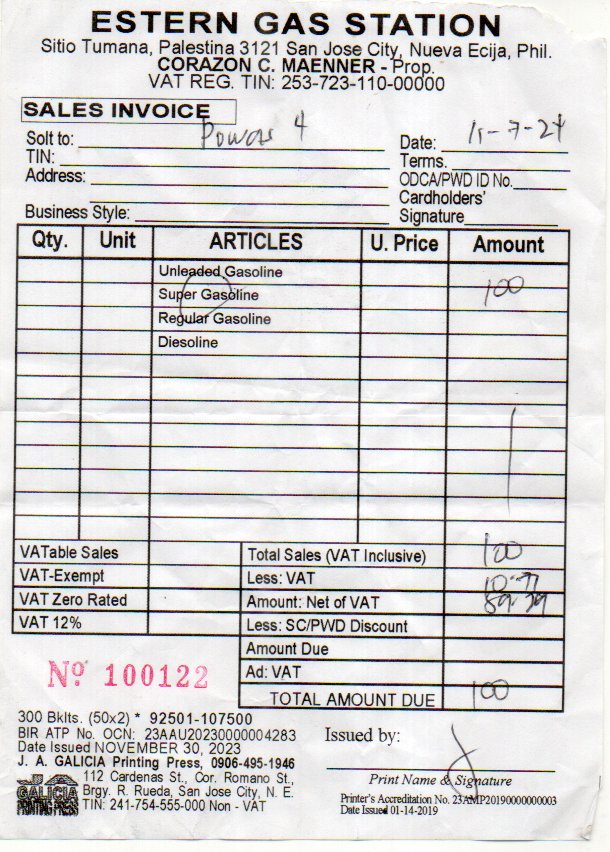 ESTERN GAS STATION
Sitio Tumana, Palestina 3121 San Jose City, Nueva Ecija, Phil.
CORAZON C. MAENNER - Prop.
VAT REG. TIN: 253-723-110-00000
SALES INVOICE
Solt to: Power 4
Date: 11-7-24
TIN:
Terms.
Address:
ODCA/PWD ID No.
Cardholders'
Business Style:
Signature
Qty. Unit ARTICLES U. Price Amount
Unleaded Gasoline
Super Gasoline 100
Regular Gasoline
Diesoline
VATable Sales Total Sales (VAT Inclusive) 100
VAT-Exempt Less: VAT 10.71
VAT Zero Rated Amount: Net of VAT 89.29
VAT 12% Less: SC/PWD Discount
Amount Due
Ad: VAT
Nº 100122
TOTAL AMOUNT DUE 100
300 Bklts. (50x2) * 92501-107500
BIR ATP No. OCN: 23AAU20230000004283
Date Issued NOVEMBER 30, 2023
J. A. GALICIA Printing Press, 0906-495-1946
112 Cardenas St., Cor. Romano St.,
Brgy. R. Rueda, San Jose City, N. E.
TIN: 241-754-555-000 Non - VAT
GALICIA
PRINTING PRESS
Issued by:
Print Name & Signature
Printer's Accreditation No. 23AMP20190000000003
Date Issued 01-14-2019